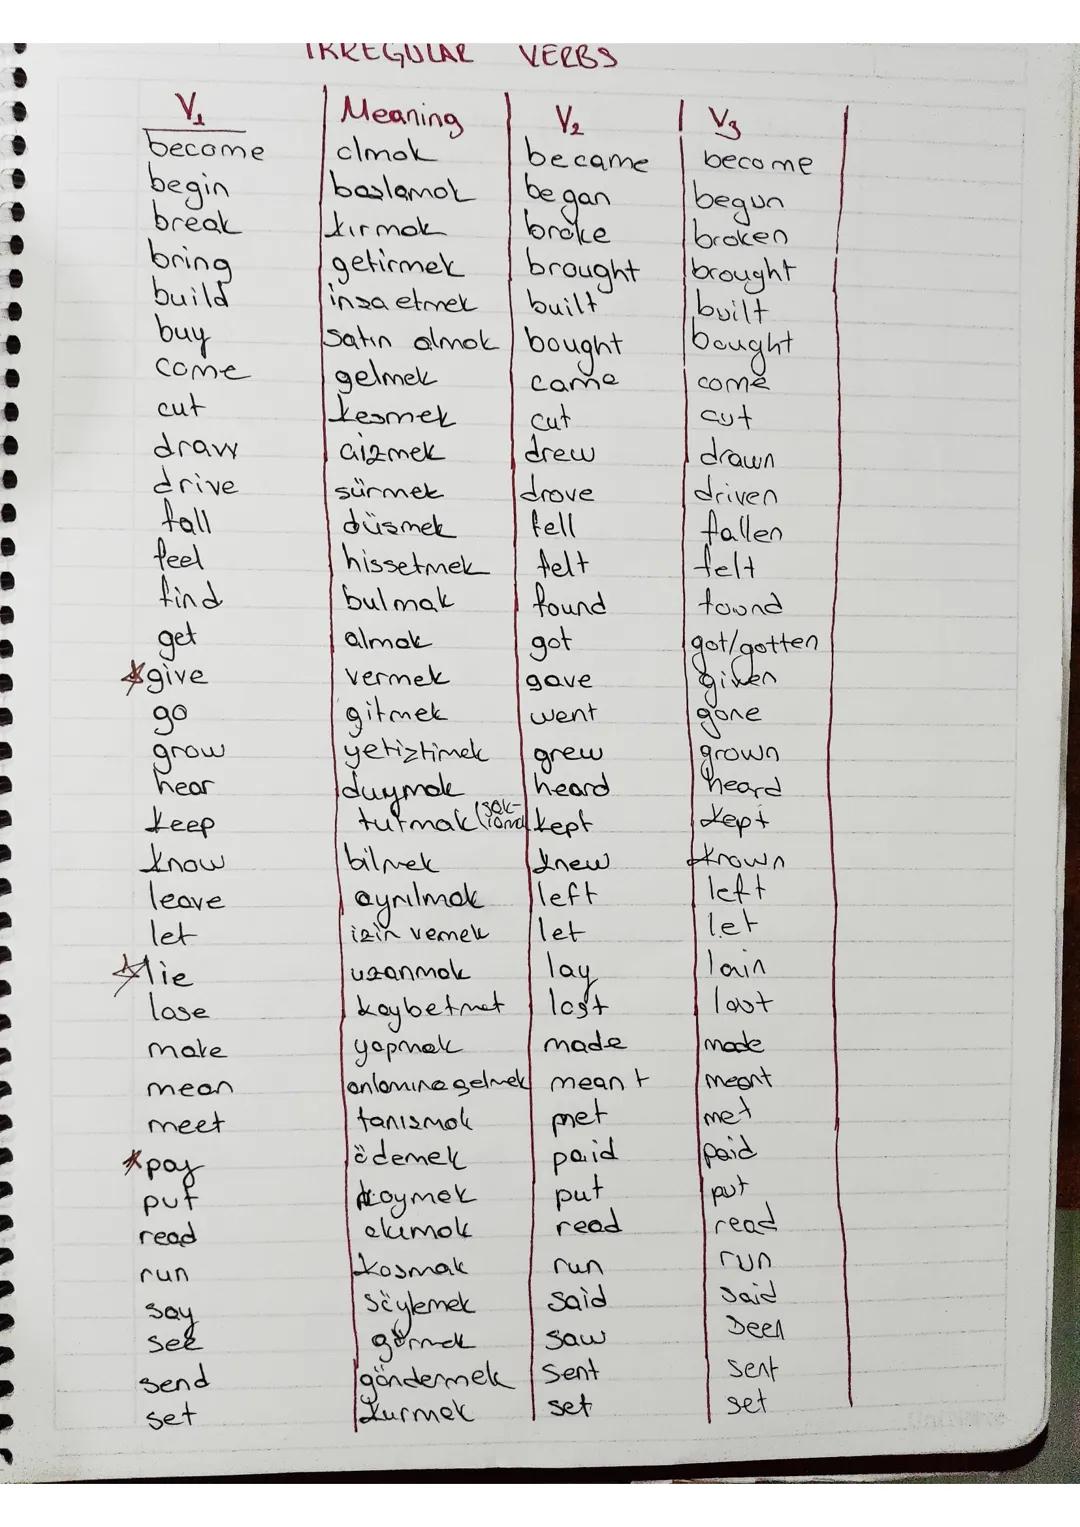 IRREGULAR VERBS
V1 Meaning V2 V3
become olmak became become
begin başlamak began begun
break kırmak broke broken
bring getirmek brought brought
build inşa etmek built built
buy satın almak bought bought
come gelmek came come
cut kesmek cut cut
draw çizmek drew drawn
drive sürmek drove driven
fall düşmek fell fallen
feel hissetmek felt felt
find bulmak found found
get almak got got/gotten
give vermek gave given
go gitmek went gone
grow yetiştimek grew grown
hear duymak heard heard
keep tutmak kept kept
know bilmek knew known
leave ayrılmak left left
let izin vemek let let
lie uzanmak lay lain
lose kaybetmet lost lost
make yapmak made made
mean anlamına gelmek meant meant
meet tanısmak met met
pay ödemek paid paid
put koymek put put
read okumak read read
run kosmak run run
say söylemek said said
see görmek saw seen
send göndermek sent sent
set kurmek set set